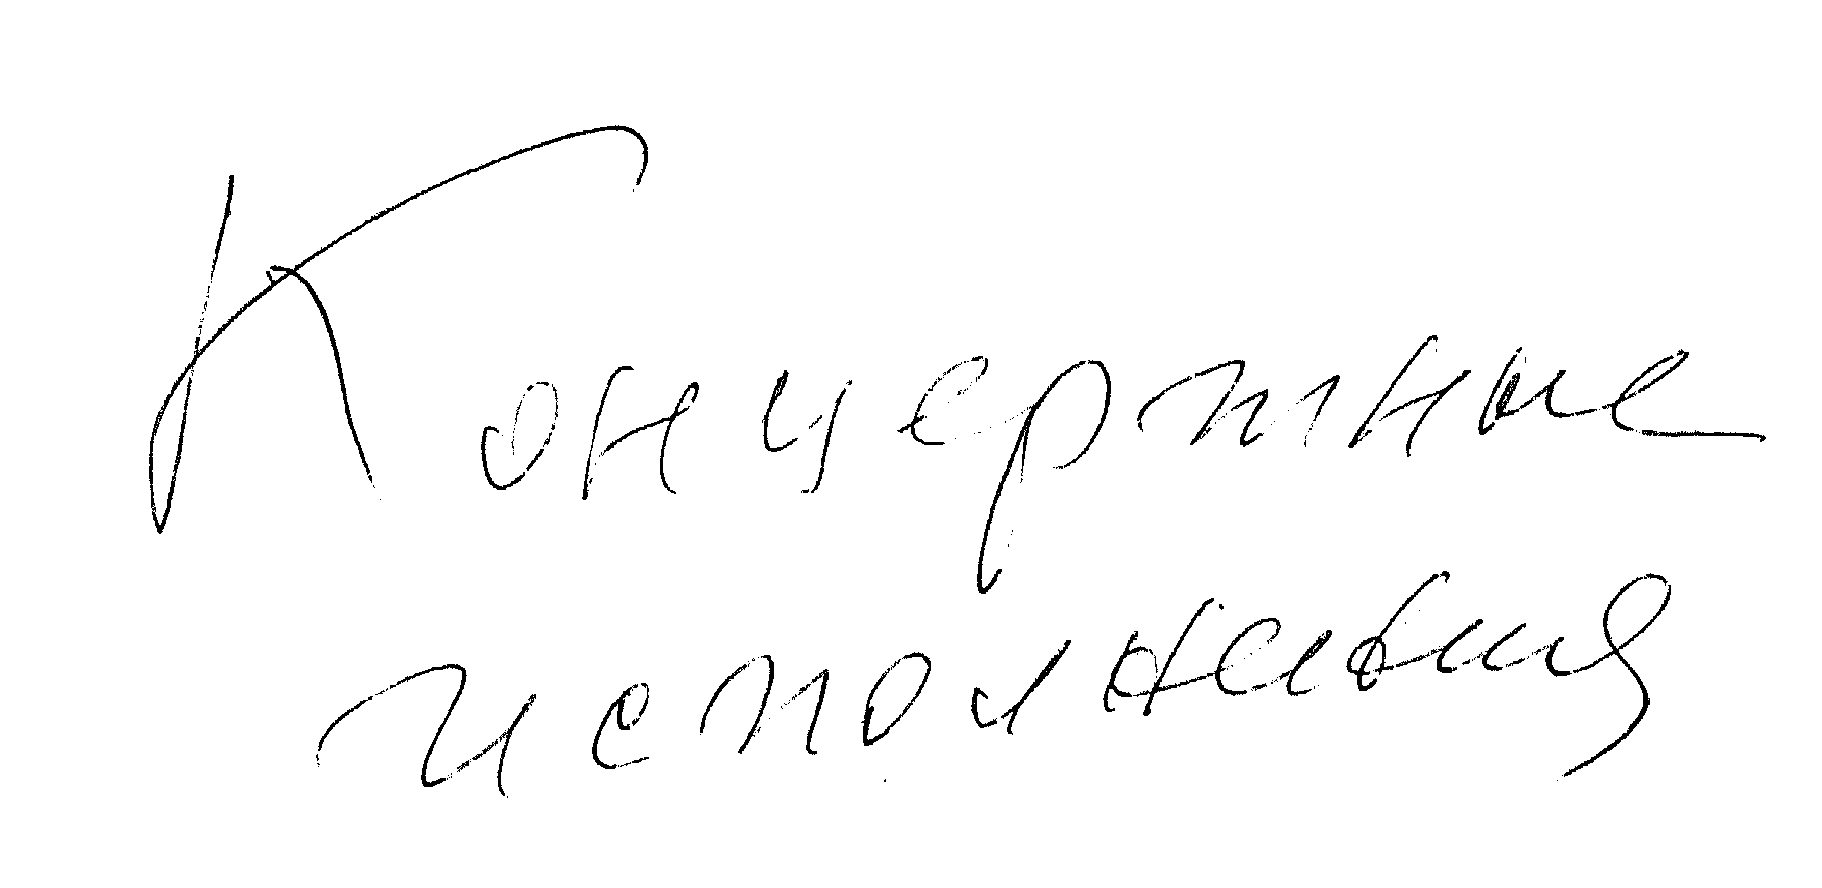 Концертные
исполнения